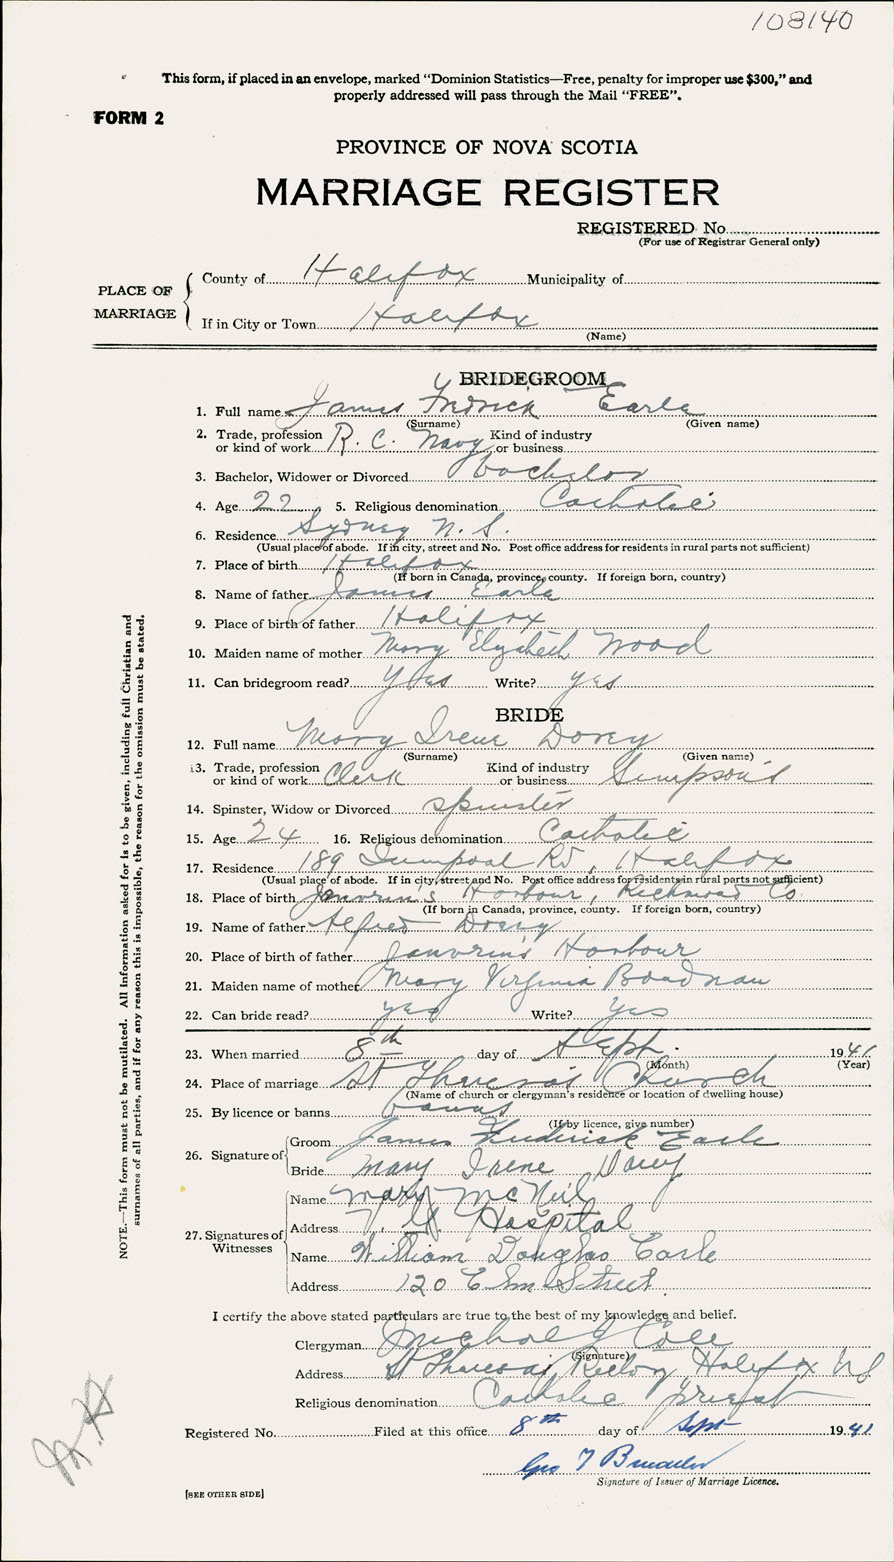 108140
This form, if placed in an envelope, marked "Dominion Statistics—Free, penalty for improper use $300," and
properly addressed will pass through the Mail "FREE".
FORM 2
PROVINCE OF NOVA SCOTIA
MARRIAGE REGISTER
REGISTERED No.
(For use of Registrar General only)
PLACE OF MARRIAGE
County of Halifax Municipality of
If in City or Town Halifax
(Name)
BRIDEGROOM
1. Full name James Fredrick Earle
(Surname) (Given name)
2. Trade, profession or kind of work R. C. Navy Kind of industry or business
3. Bachelor, Widower or Divorced bachelor
4. Age 22 5. Religious denomination Catholic
6. Residence Sydney N. S.
(Usual place of abode. If in city, street and No. Post office address for residents in rural parts not sufficient)
7. Place of birth Halifax
(If born in Canada, province, county. If foreign born, country)
8. Name of father James Earle
9. Place of birth of father Halifax
10. Maiden name of mother Mary Elizabeth Wood
11. Can bridegroom read? Yes Write? yes
BRIDE
12. Full name Mary Irene Dorey
(Surname) (Given name)
13. Trade, profession or kind of work Clerk Kind of industry or business Simpson's
14. Spinster, Widow or Divorced spinster
15. Age 24 16. Religious denomination Catholic
17. Residence 189 Rd, Halifax
(Usual place of abode. If in city, street and No. Post office address for residents in rural parts not sufficient)
18. Place of birth Janvrin's Harbour, Richmond Co.
(If born in Canada, province, county. If foreign born, country)
19. Name of father Alfred Dorey
20. Place of birth of father Janvrin's Harbour
21. Maiden name of mother Mary Virginia
22. Can bride read? yes Write? Yes
23. When married 8th day of Sept. 1941
(Month) (Year)
24. Place of marriage St Theresa's Church
(Name of church or clergyman's residence or location of dwelling house)
25. By licence or banns banns
(If by licence, give number)
26. Signature of
Groom James Frederick Earle
Bride Mary Irene Dorey
27. Signatures of Witnesses
Name Mary McNeil
Address Hospital
Name William Douglas Earle
Address 120 Elm Street
I certify the above stated particulars are true to the best of my knowledge and belief.
Clergyman Michael Cole
(Signature)
Address St Theresas Halifax NS
Religious denomination Catholic priest
Registered No. Filed at this office 8th day of Sept 1941
Geo T
Signature of Issuer of Marriage Licence.
[SEE OTHER SIDE]
NOTE.—This form must not be mutilated. All information asked for is to be given, including full Christian and
surnames of all parties, and if for any reason this is impossible, the reason for the omission must be stated.